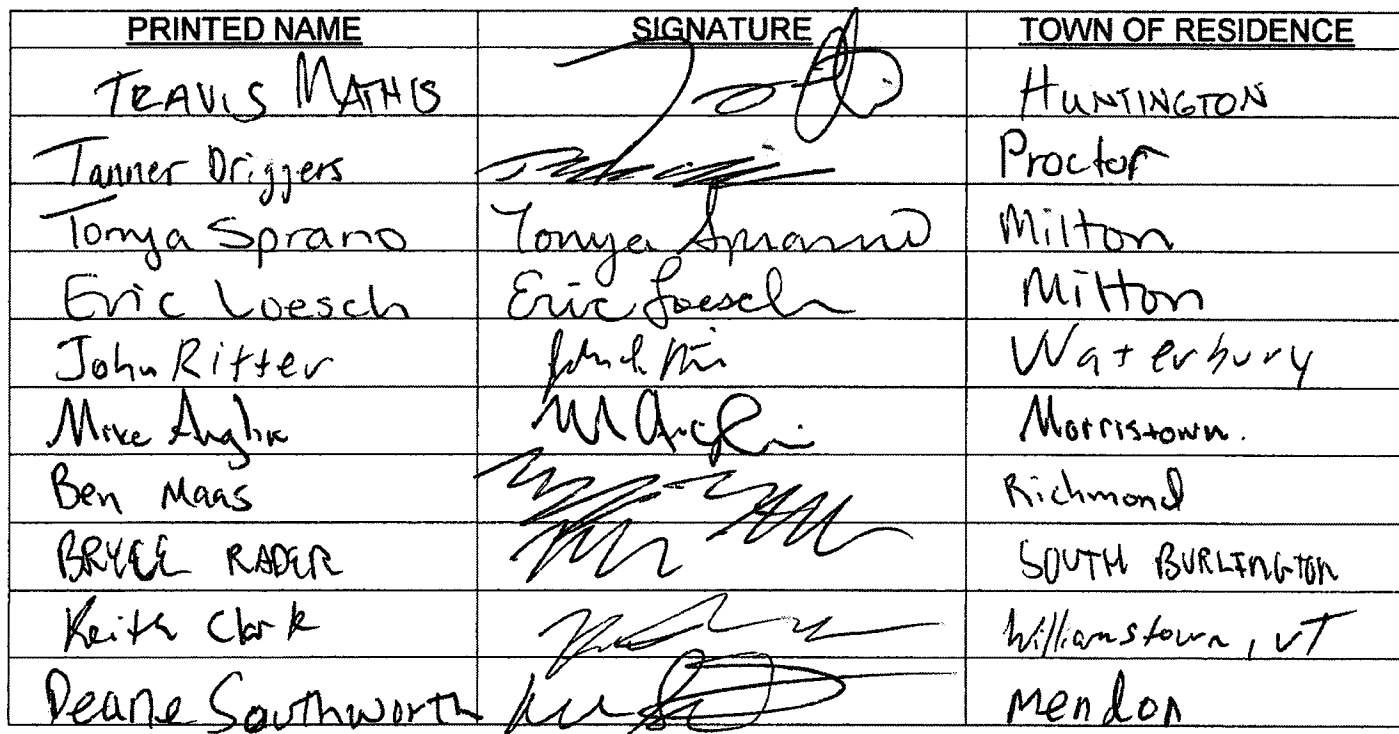 PRINTED NAME SIGNATURE TOWN OF RESIDENCE
TRAVIS MATHIS HUNTINGTON
Tanner Driggers Proctor
Tonya Sprano Tonya Sprano Milton
Eric Loesch Eric Loesch Milton
John Ritter Waterbury
Mike Anglin Morristown.
Ben Maas Richmond
BRYCE RADER SOUTH BURLINGTON
Keith Clark Williamstown, VT
Deane Southworth Mendon